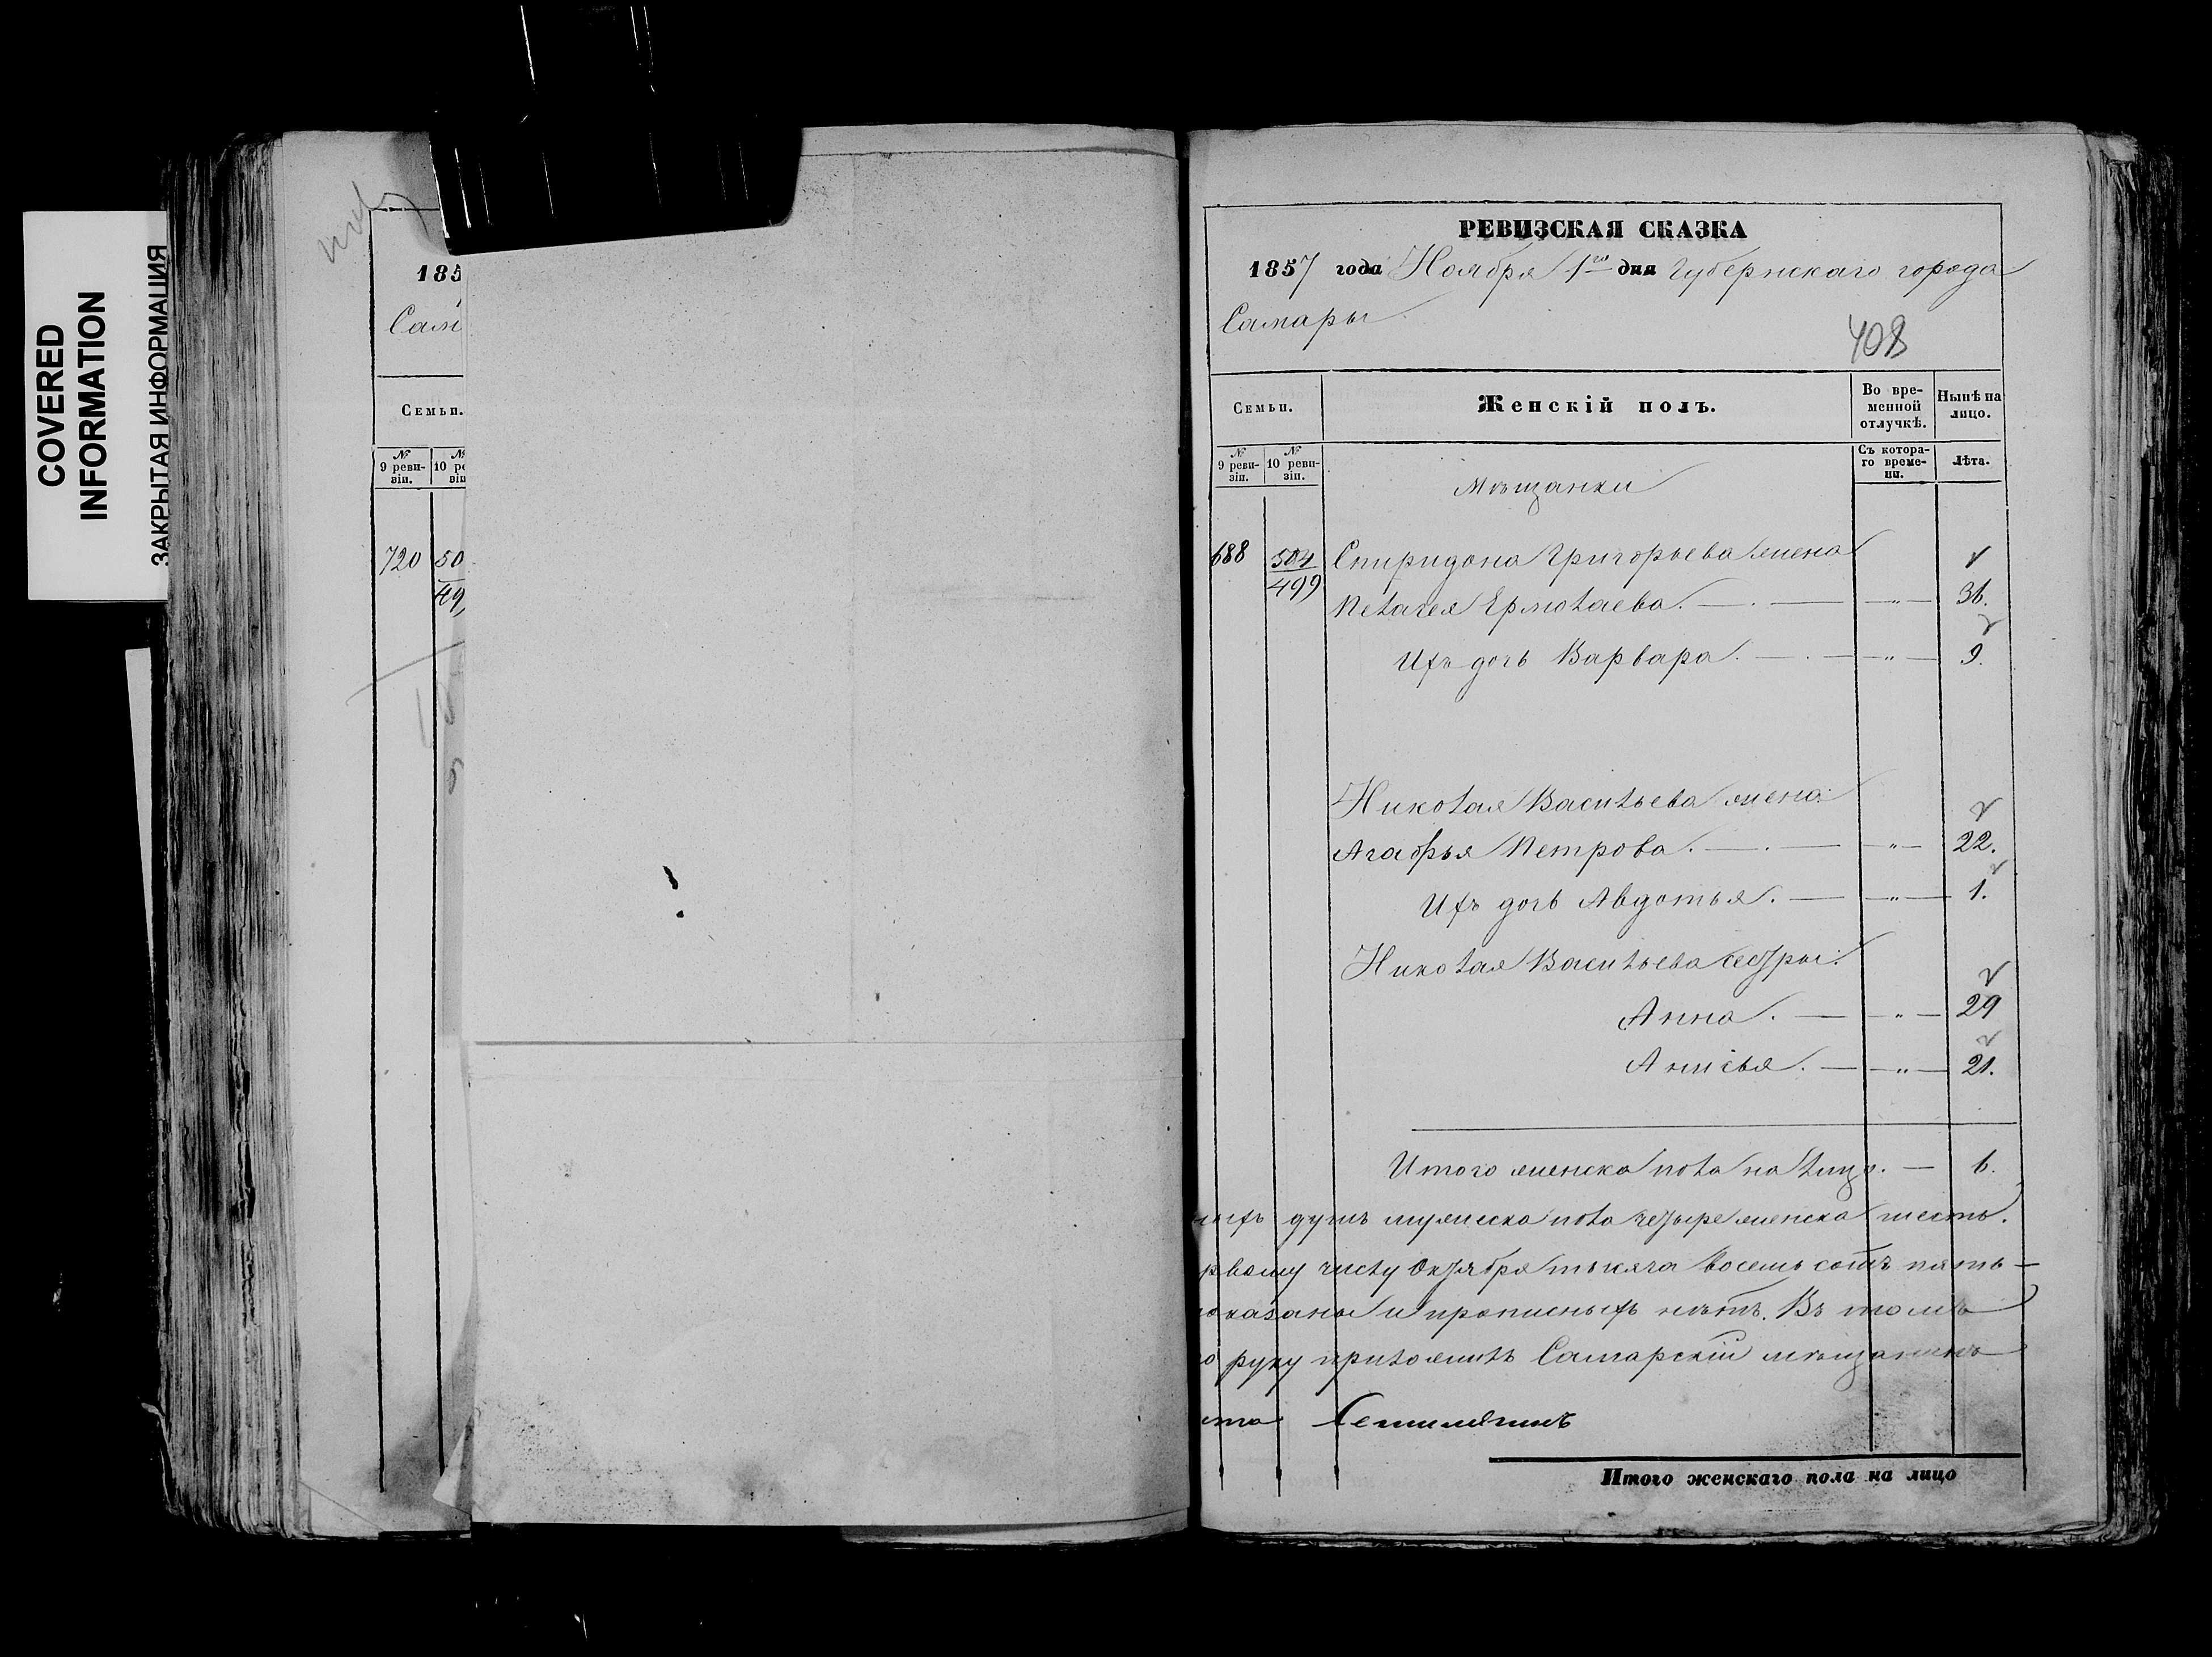 COVERED
INFORMATION
ЗАКРЫТАЯ ИНФОРМАЦИЯ
185
Сам
Семьи.
№
9 реви-
зіи.
10 ре
зіи
720 50
49
РЕВИЗСКАЯ СКАЗКА
1857 года Ноября 1го дня Губернскаго города
Самары
408
Семьи.
Женскій полъ.
Во вре-
менной
отлучкѣ.
Нынѣ на
лицо.
№
9 реви-
зіи.
№
10 реви-
зіи.
Съ котора-
го време-
ни.
Лѣта.
Мѣщанки
688 504 Спиридона Григорьева жена
499 Пелагея Ермолаева. — . — „ — 36.
Ихъ дочь Варвара. — . — „ — 9.
Николая Васильева жена
Агафья Петрова. — . — „ — 22.
Ихъ дочь Авдотья. — „ — 1.
Николая Васильева сестры:
Анна. — „ — 29
Анисья. — „ — 21.
Итого женска пола на лицо. — 6.
душъ мужеска пола четыре женска шесть.
рвому числу Октября тысяча восемь сотъ пять-
оказаны и прописныхъ нѣтъ. Въ томъ
руку приложилъ Самарскій мѣщанинъ
Итого женскаго пола на лицо